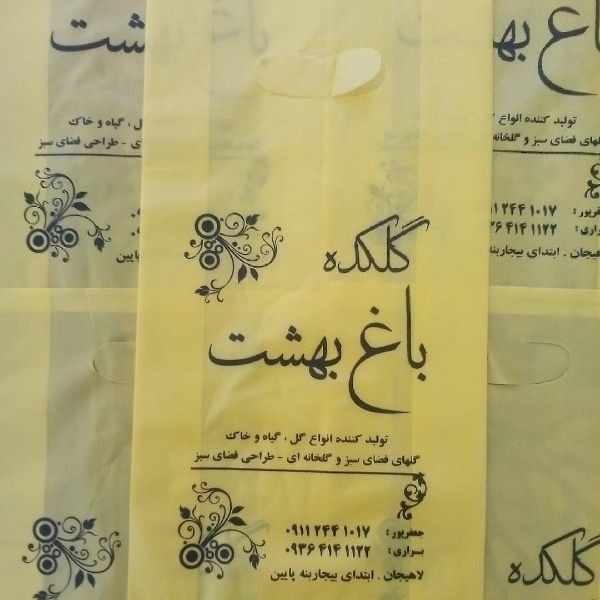 گلکده
باغ بهشت
تولید کننده انواع گل ، گیاه و خاک
گلهای فضای سبز و گلخانه ای - طراحی فضای سبز
جعفرپور : ۰۹۱۱ ۲۴۴ ۱۰۱۷
براری : ۰۹۳۶ ۴۱۴ ۱۱۲۲
لاهیجان . ابتدای بیجاربنه پایین
باغ
گل ، گیاه و خاک
ای - طراحی فضای سبز
پایین
باغ بهشت
تولید کننده انواع
گلهای فضای سبز و گلخانه
جعفرپور : ۹۱۱ ۲۴۴ ۱۰۱۷
براری : ۳۶ ۴۱۴ ۱۱۲۲
لاهیجان . ابتدای بیجاربنه
گلکده